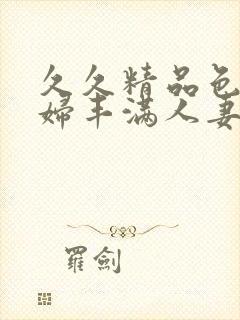 久久精品色
婦丰滿人妻
羅劍